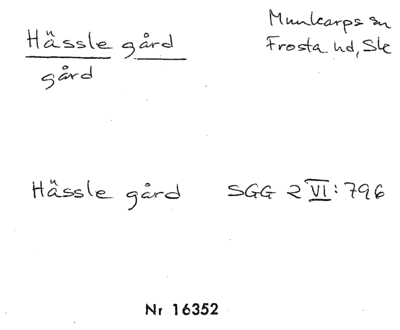 Hässle gård
gård
Munkarps sn
Frosta hd, Sk
Hässle gård SGG 2 VI: 796
Nr 16352